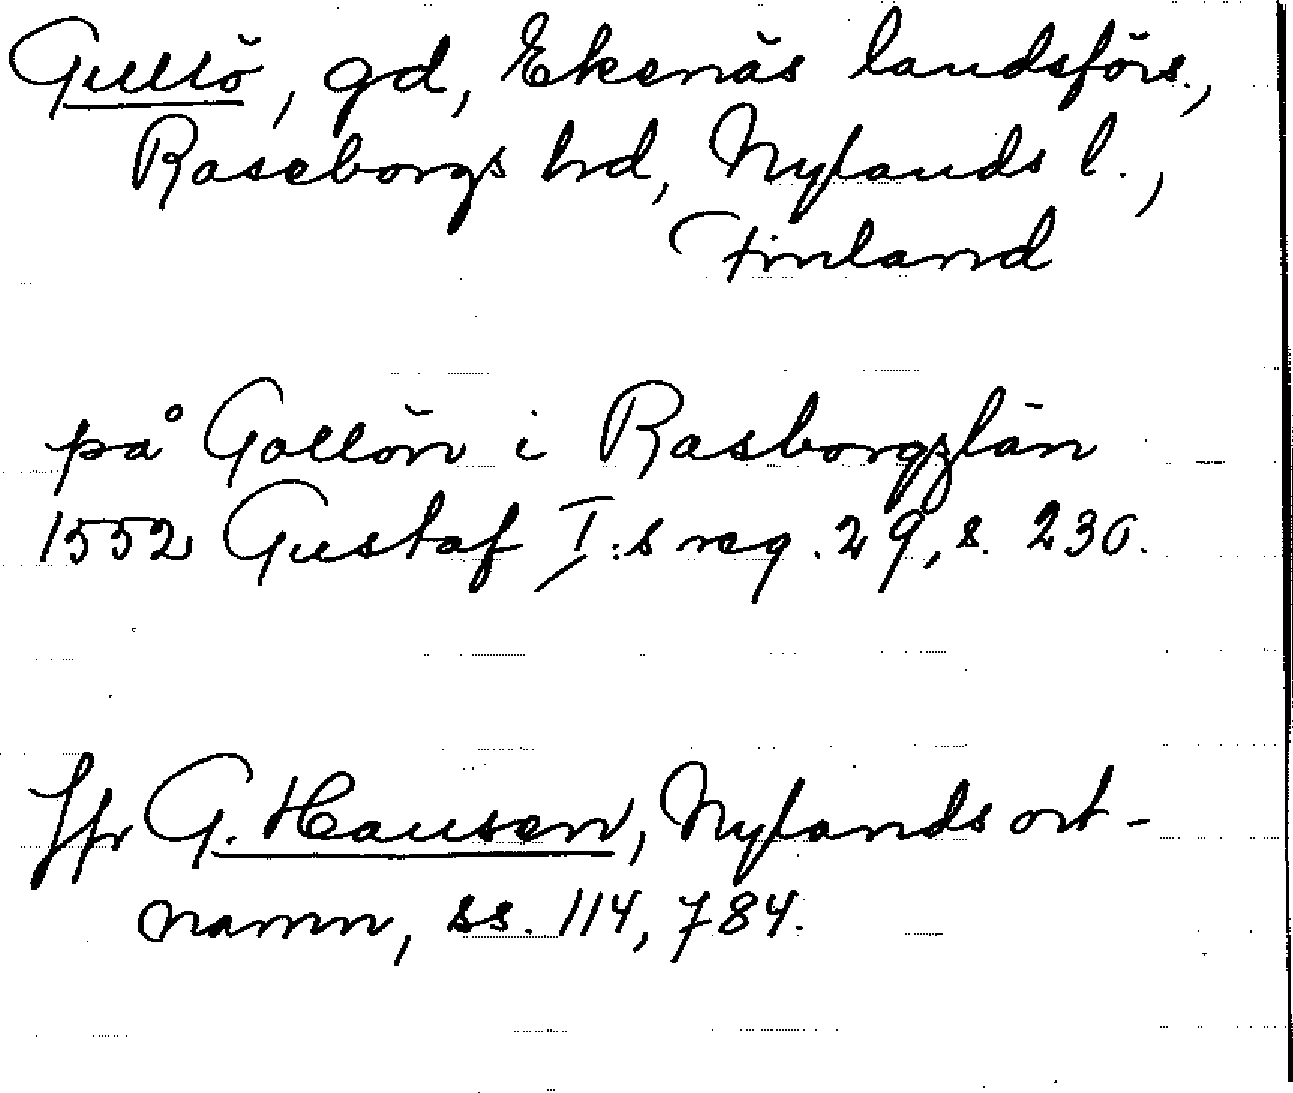 Gullö, gd, Ekenäs landsförs.,
Raseborgs hrd, Nylands l.,
Finland
på Gollön i Rasborgzlän
1552 Gustaf I:s reg. 29, s. 230.
Jfr G. Hausen, Nylands ort-
namn, ss. 114, 784.